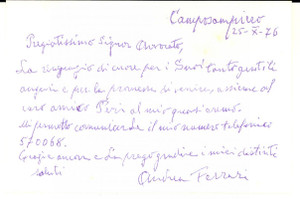 Camposampiero
25-X-76
Pregiatissimo Signor Avvocato,
La ringrazio di cuore per i Suoi tanto gentili
auguri e per la promessa di venire, assieme al
caro amico Piri al mio
Mi permetto comunicarLe il mio numero telefonico
570068.
Grazie ancora e La prego gradire i miei distinti
saluti
Andrea Ferrari